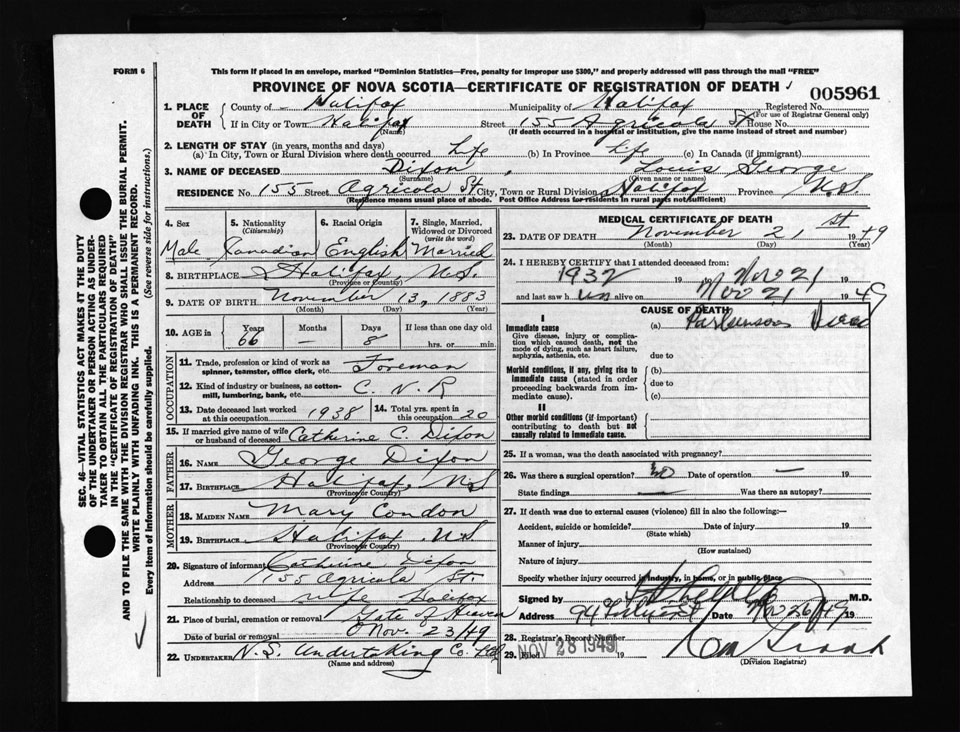 FORM 6
This form if placed in an envelope, marked "Dominion Statistics—Free, penalty for improper use $300," and properly addressed will pass through the mail "FREE"
PROVINCE OF NOVA SCOTIA—CERTIFICATE OF REGISTRATION OF DEATH
005961
1. PLACE OF DEATH County of Halifax Municipality of Halifax Registered No.
(For use of Registrar General only)
If in City or Town Halifax Street 155 Agricola St House No.
(Name) (If death occurred in a hospital or institution, give the name instead of street and number)
2. LENGTH OF STAY (in years, months and days)
(a) In City, Town or Rural Division where death occurred Life (b) In Province Life (c) In Canada (if immigrant)
3. NAME OF DECEASED Dixon, Louis George
(Surname) (Given name or names)
RESIDENCE No. 155 Street Agricola St City, Town or Rural Division Halifax Province N.S.
(Residence means usual place of abode. Post Office Address for residents in rural parts not sufficient)
4. Sex 5. Nationality (Citizenship) 6. Racial Origin 7. Single, Married, Widowed or Divorced (write the word)
Male Canadian English Married
8. BIRTHPLACE Halifax, N.S.
(Province or Country)
9. DATE OF BIRTH November 13, 1883
(Month) (Day) (Year)
10. AGE in Years Months Days If less than one day old
66 — 8 hrs. or min.
OCCUPATION
11. Trade, profession or kind of work as spinner, teamster, office clerk, etc. Foreman
12. Kind of industry or business, as cotton-mill, lumbering, bank, etc. C. N. R
13. Date deceased last worked at this occupation 1938 14. Total yrs. spent in this occupation 20
15. If married give name of wife or husband of deceased Catherine C. Dixon
FATHER
16. NAME George Dixon
17. BIRTHPLACE Halifax, N.S
(Province or Country)
MOTHER
18. MAIDEN NAME Mary Condon
19. BIRTHPLACE Halifax, N.S
(Province or Country)
20. Signature of informant Catherine Dixon
Address 155 Agricola St.
Relationship to deceased wife Halifax
21. Place of burial, cremation or removal Gate of Heaven
Date of burial or removal Nov. 23/49
22. UNDERTAKER N.S. Undertaking Co. Ltd
(Name and address)
MEDICAL CERTIFICATE OF DEATH
23. DATE OF DEATH November 21st 1949
(Month) (Day) (Year)
24. I HEREBY CERTIFY that I attended deceased from:
1932 19 to Nov 21 19
and last saw him alive on Nov 21 1949
CAUSE OF DEATH
I
Immediate cause (a) Parkinsons
Give disease, injury or complication which caused death, not the mode of dying, such as heart failure, asphyxia, asthenia, etc. due to
Morbid conditions, if any, giving rise to immediate cause (stated in order proceeding backwards from immediate cause). (b)
due to
(c)
II
Other morbid conditions (if important) contributing to death but not causally related to immediate cause.
25. If a woman, was the death associated with pregnancy?
26. Was there a surgical operation? no Date of operation — 19
State findings — Was there an autopsy?
27. If death was due to external causes (violence) fill in also the following:—
Accident, suicide or homicide? Date of injury 19
(State which)
Manner of injury
(How sustained)
Nature of injury
Specify whether injury occurred in industry, in home, or in public place
Signed by M.D.
Address 94 Date Nov 26/49 19
28. Registrar's Record Number
29. Filed NOV 28 1949 19
(Division Registrar)
SEC. 46—VITAL STATISTICS ACT MAKES IT THE DUTY
OF THE UNDERTAKER OR PERSON ACTING AS UNDER-
TAKER TO OBTAIN ALL THE PARTICULARS REQUIRED
IN THE "CERTIFICATE OF REGISTRATION OF DEATH"
AND TO FILE THE SAME WITH THE DIVISION REGISTRAR WHO SHALL ISSUE THE BURIAL PERMIT.
WRITE PLAINLY WITH UNFADING INK. THIS IS A PERMANENT RECORD.
Every item of information should be carefully supplied. (See reverse side for instructions.)